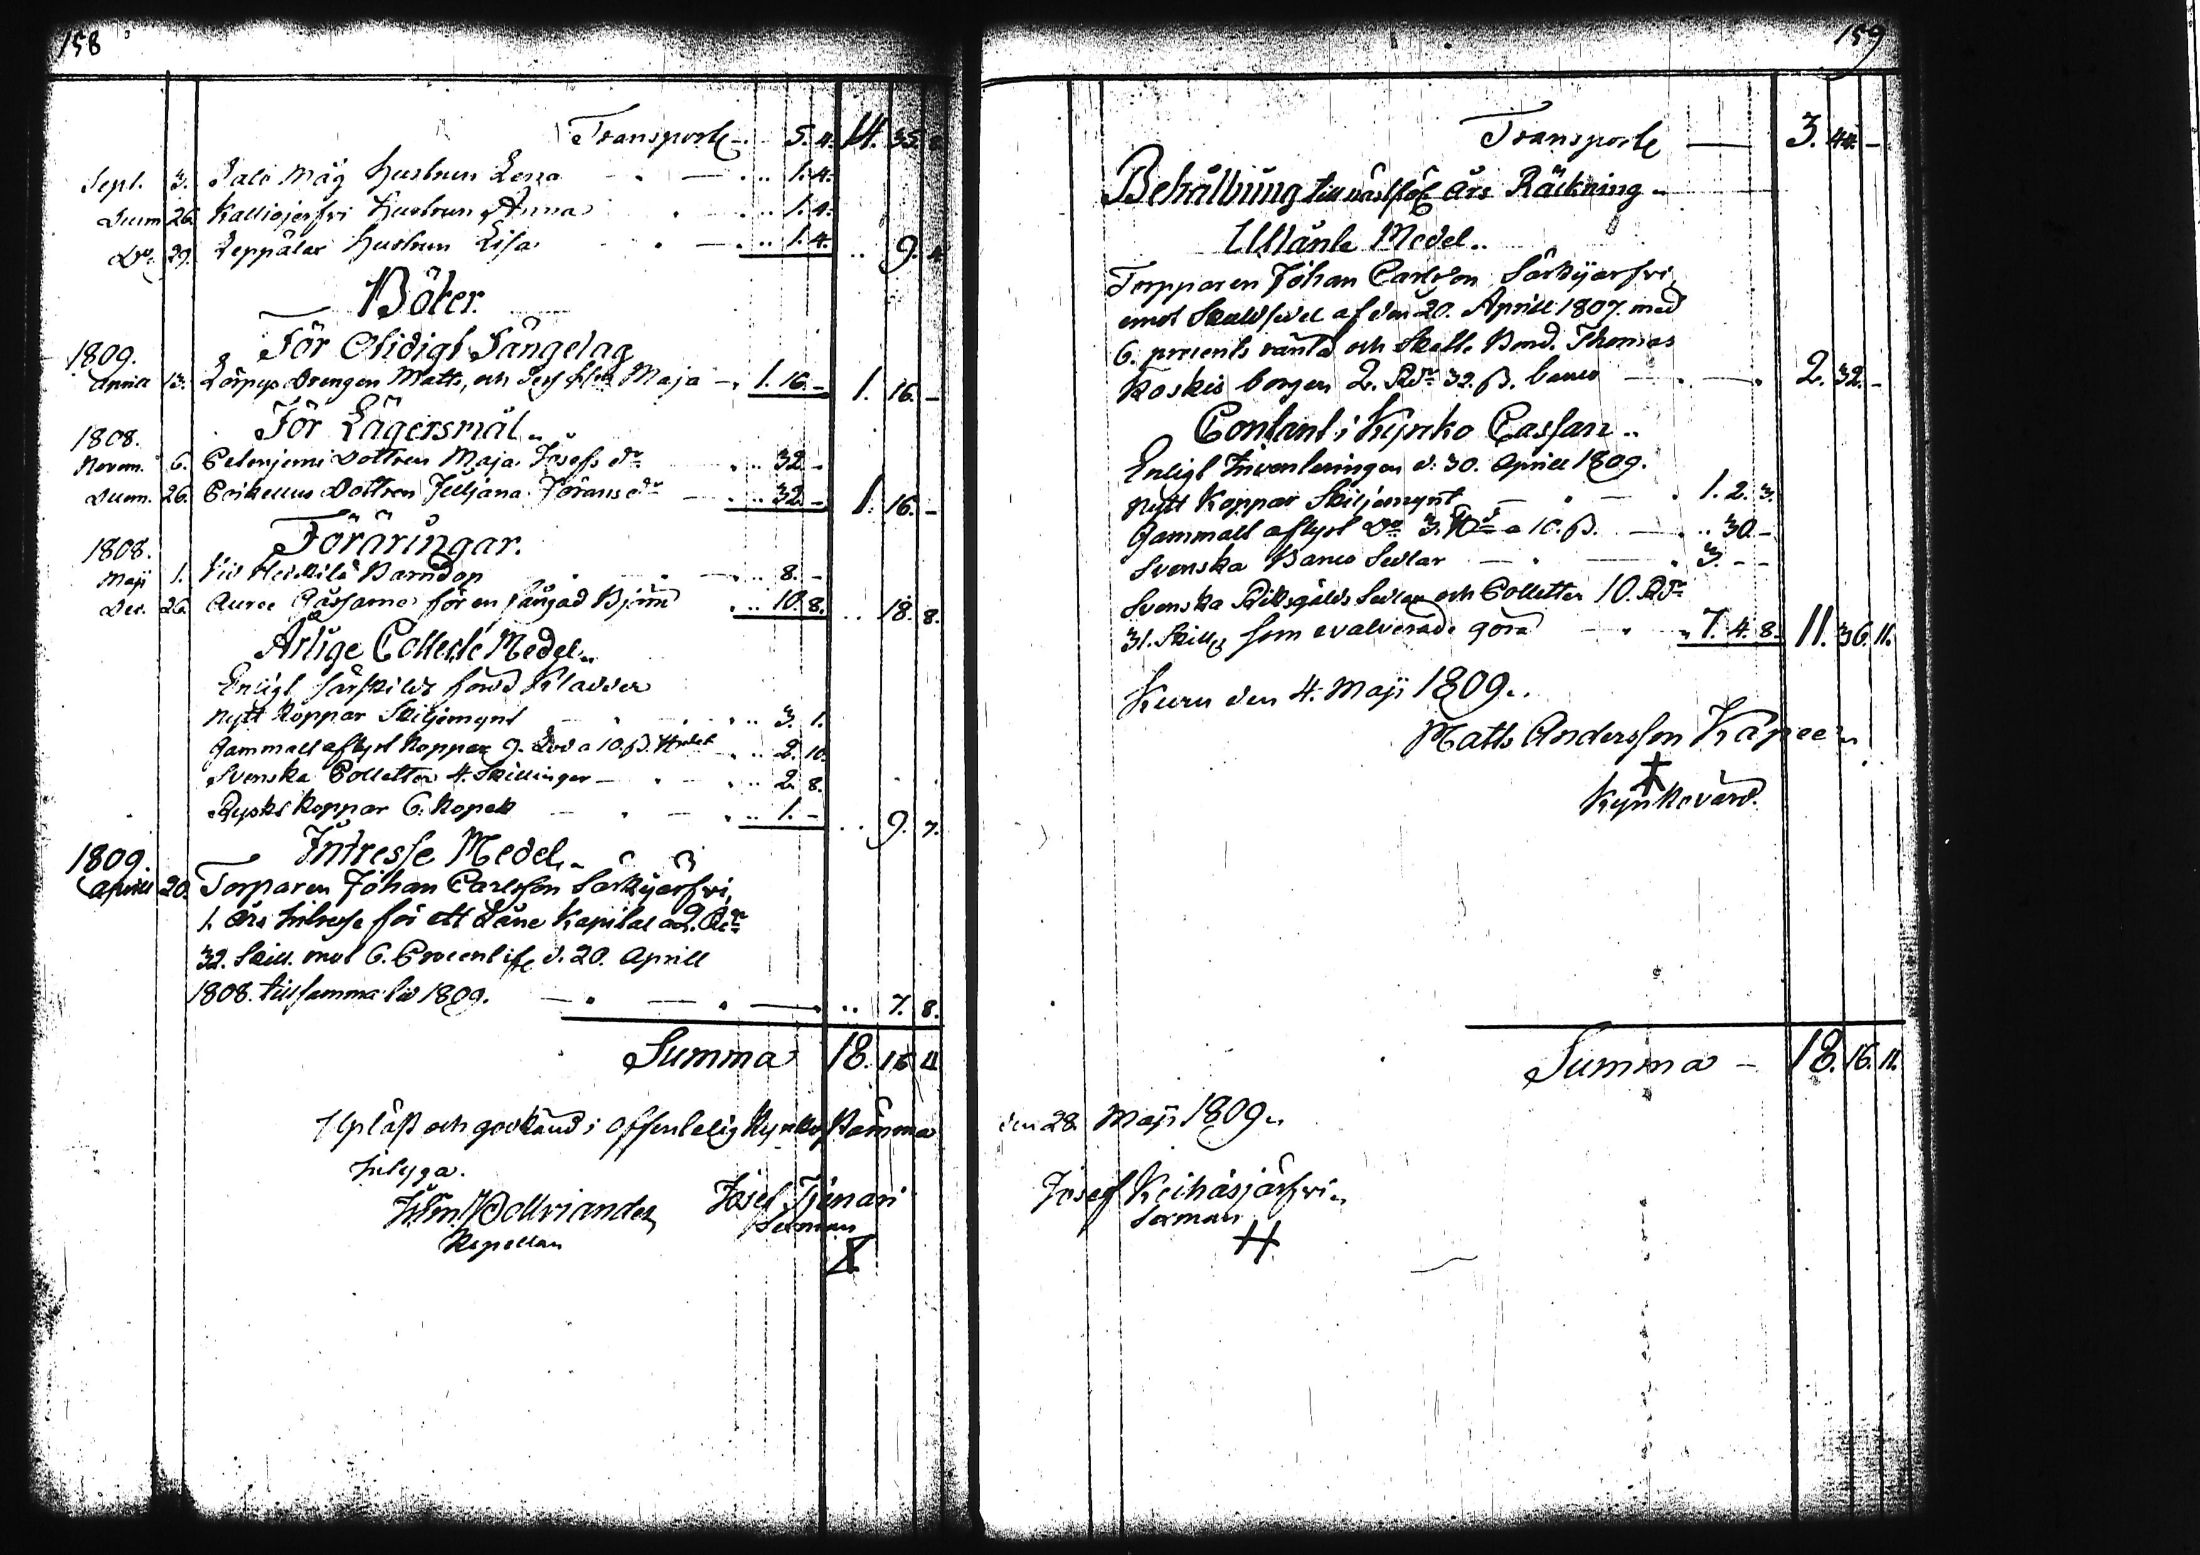 158
Transport 5. 4. 14. 35.
Sept. 3. Salo Måg Hustrun Lena 1. 4.
Decem 26. Kalliojerfvi Hustrun Anna 1. 4.
Do 29. Leppälax Hustrun Lisa 1. 4. 9. 4
Böter.
För Otidigt Sängelag
1809.
Aprill 13. Drengen Matts, och Maja 1. 16. - 1. 16. -
För Lägersmål
1808.
Novem. 6. Dottren Maja Josefs dr 32. -
Decem. 26. Dottren Juljana Jörans dr 32. - 1. 16. -
Föräringar.
1808.
Maji 1. Vid Heikkilä Barndop 8. -
Dec. 26. för en fångad Björn 10. 8. 18. 8.
Årlige Collecte Medel
Enligt särskild förd Kladd
Nytt Koppar Skiljemynt 3. 1.
Gammalt aflyst Koppar 9. Lod a 10. ß. 2. 10.
Svenska Polletter 4. Skillingar 2. 8.
Ryskt Koppar 6. Kopek 1. - 9. 7.
Intresse Medel
1809.
Aprill 20. Torparen Johan Carlsson Särkijärfvi,
1. Års Intresse för ett Låne Kapital a 2. Rdr
32. Skill. mot 6. Procent ifr. d. 20. Aprill
1808. till samma tid 1809. 7. 8.
Summa 18. 16. 11
Upläst och godkänd i offentelig Kyrkostämma
intyga.
Kapellan
Josef
Sexman
159
Transport 3. 44. -
Behållning till nästföl. års Räckning
Utlånte Medel
Torpparen Johan Carlsson Särkijärfvi,
emot Skuldsedel af den 20. Aprill 1807. med
6. procents ränta och Bond. Thomas
Koskis borgen 2. Rdr 32. ß. banco 2. 32. -
Contant i Kyrko Cassan
Enligt Inventeringen d. 30. Aprill 1809.
Nytt Koppar Skiljemynt 1. 2. 3.
Gammalt aflyst Do 3. a 10. ß. 30. -
Svenska Banco Sedlar 3. - -
Svenska Riksgälds Sedlar och Polletter 10. Rdr
31. Skill. som evalverade göra 7. 4. 8. 11. 36. 11.
Kuru den 4. Maji 1809.
Matts Andersson
Kyrkovärd.
Summa - 18. 16. 11.
den 28. Maji 1809.
Josef Keihäsjärfvi
Sexman